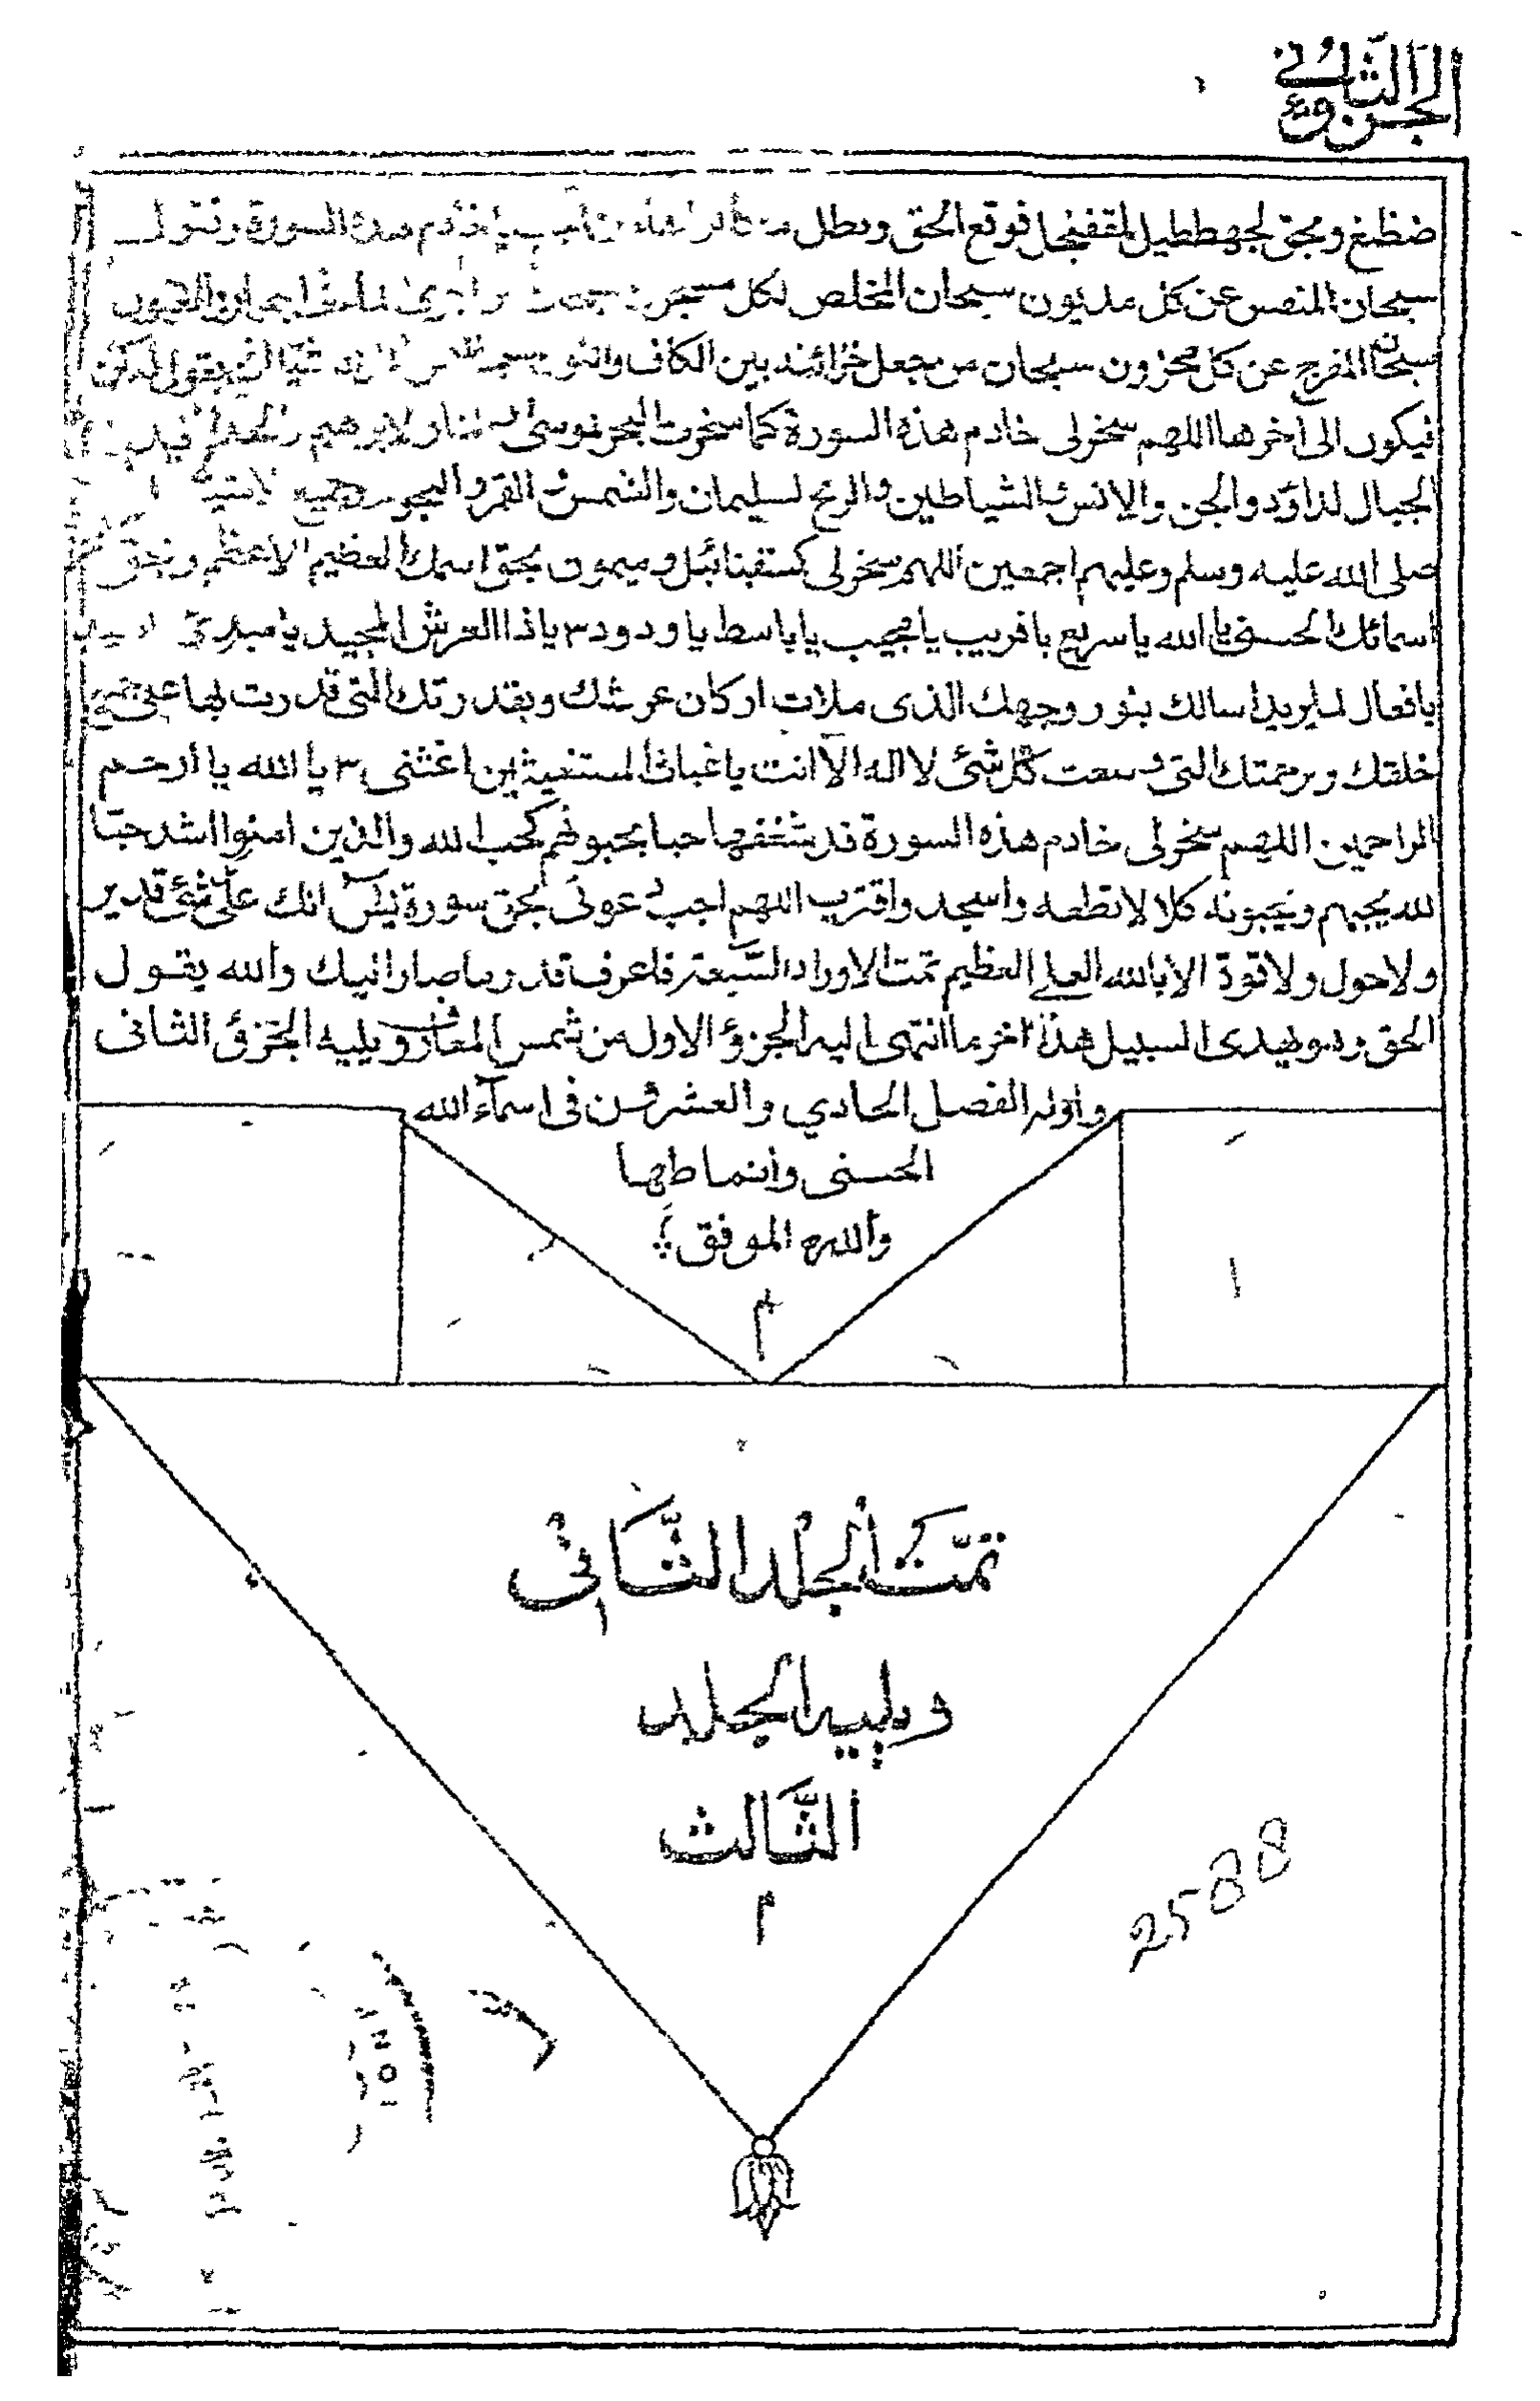 الجزء الثاني
ضظغ وبحق لجهططيل لمقفنجل فوقع الحق وبطل هذه السورة وتقول
سبحان المنفس عن كل مديون سبحان المخلص لكل مسجون
سبحان المفرج عن كل محزون سبحان من جعل خزائنه بين الكاف والنون
فيكون الى اخرها اللهم سخرلى خادم هذه السورة كما سخرت البحر لموسى والنار لابرهيم
الجبال لداود والجن والانس والشياطين والريح لسليمان والشمس والقمر والنجوم
صلى الله عليه وسلم وعليهم اجمعين اللهم سخرلى وميمون بحق اسمك العظيم الاعظم وبحق
اسمائك الحسنى يا الله يا سريع يا قريب يا مجيب يا باسط يا ودود ٣ يا ذا العرش المجيد يا مبدئ
يا فعال لما يريد اسالك بنور وجهك الذى ملات اركان عرشك وبقدرتك التى قدرت بها على جميع
خلقك وبرحمتك التى وسعت كل شئ لا اله الا انت يا غياث المستغيثين اغثنى ٣ يا الله يا ارحم
الراحمين اللهم سخرلى خادم هذه السورة قد شغفها حبا يحبونهم كحب الله والذين امنوا اشد حبا
لله يحبهم ويحبونه كلا لا تطعه واسجد واقترب اللهم اجب دعوتى بحق سورة يس انك على شئ قدير
ولا حول ولا قوة الا بالله العلى العظيم تمت الاوراد السبعة فاعرف قدر ما صار اليك والله يقول
الحق وهو يهدى السبيل هذا اخر ما انتهى اليه الجزؤ الاول من شمس المعارف ويليه الجزؤ الثانى
واوله الفصل الحادي والعشرون فى اسماء الله
الحسنى وانماطها
والله الموفق
م
تمت الجلد الثانى
ويليه الجلد
الثالث
م
2588